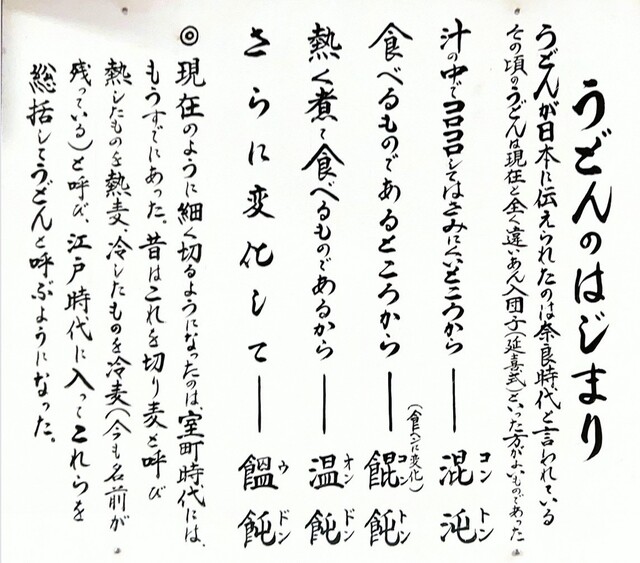 うどんのはじまり
うどんが日本に伝えられたのは奈良時代と言われている
その頃のうどんは現在と全く違いあん入団子(延喜式)といった方がよいものであった
汁の中でコロコロしてはさみにくいところから―混沌
コントン
食べるものであるところから―餛飩
コントン
(食ヘンに変化)
熱く煮て食べるものであるから―温飩
オンドン
さらに変化して―饂飩
ウドン
◎現在のように細く切るようになったのは、室町時代には、
もうすでにあった。昔はこれを切り麦と呼び
熱したものを熱麦、冷したものを冷麦(今も名前が
残っている)と呼び、江戸時代に入ってこれらを
総括してうどんと呼ぶようになった。